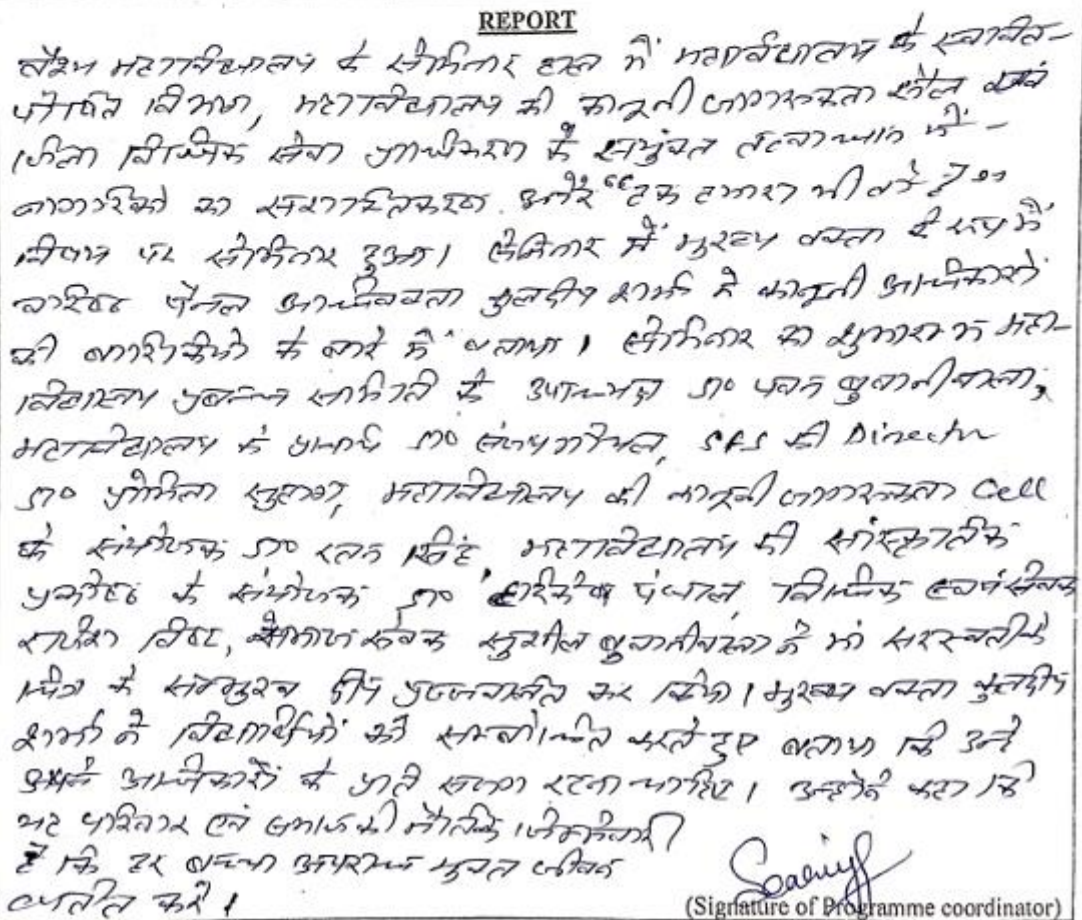 REPORT
वैश्य महाविद्यालय के सेमिनार हाल में महाविद्यालय के स्ववित्त-
पोषित विभाग, महाविद्यालय की कानूनी जागरूकता सैल एवं
जिला विधिक सेवा प्राधिकरण के संयुक्त तत्वाधान में -
नागरिको का सशक्तिकरण और "हक हमारा भी तो है"
विषय पर सेमिनार हुआ। सेमिनार में मुख्य वक्ता के रूप में
वरिष्ठ पैनल अधिवक्ता कुलदीप शर्मा ने कानूनी अधिकारो
की बारीकियो के बारे में बताया। सेमिनार का शुभारम्भ महा-
विद्यालय प्रबन्धन समिति के उपाध्यक्ष डा० पवन बुवानीवाला,
महाविद्यालय के प्राचार्य डा० संजय गोयल, SFS की Director
डा० प्रोमिला सुहाग, महाविद्यालय की कानूनी जागरूकता Cell
के संयोजक डा० रतन सिंह, महाविद्यालय की सांस्कृतिक
प्रकोष्ठ के संयोजक डा० हरिकेश पंघाल, विधिक स्वयंसेवक
विष्ट, समाज सेवक सुशील बुवानीवाला ने मां सरस्वती के
चित्र के सम्मुख दीप प्रज्जवलित कर किया। मुख्य वक्ता कुलदीप
शर्मा ने विद्यार्थियों को सम्बोधित करते हुए बताया कि उन्हे
अपने अधिकारों के प्रति सजग रहना चाहिए। उन्होने कहा कि
यह परिवार एवं समाज की नैतिक जिम्मेवारी
है कि हर बच्चा अपराध मुक्त जीवन
व्यतीत करे।
(Signature of Programme coordinator)